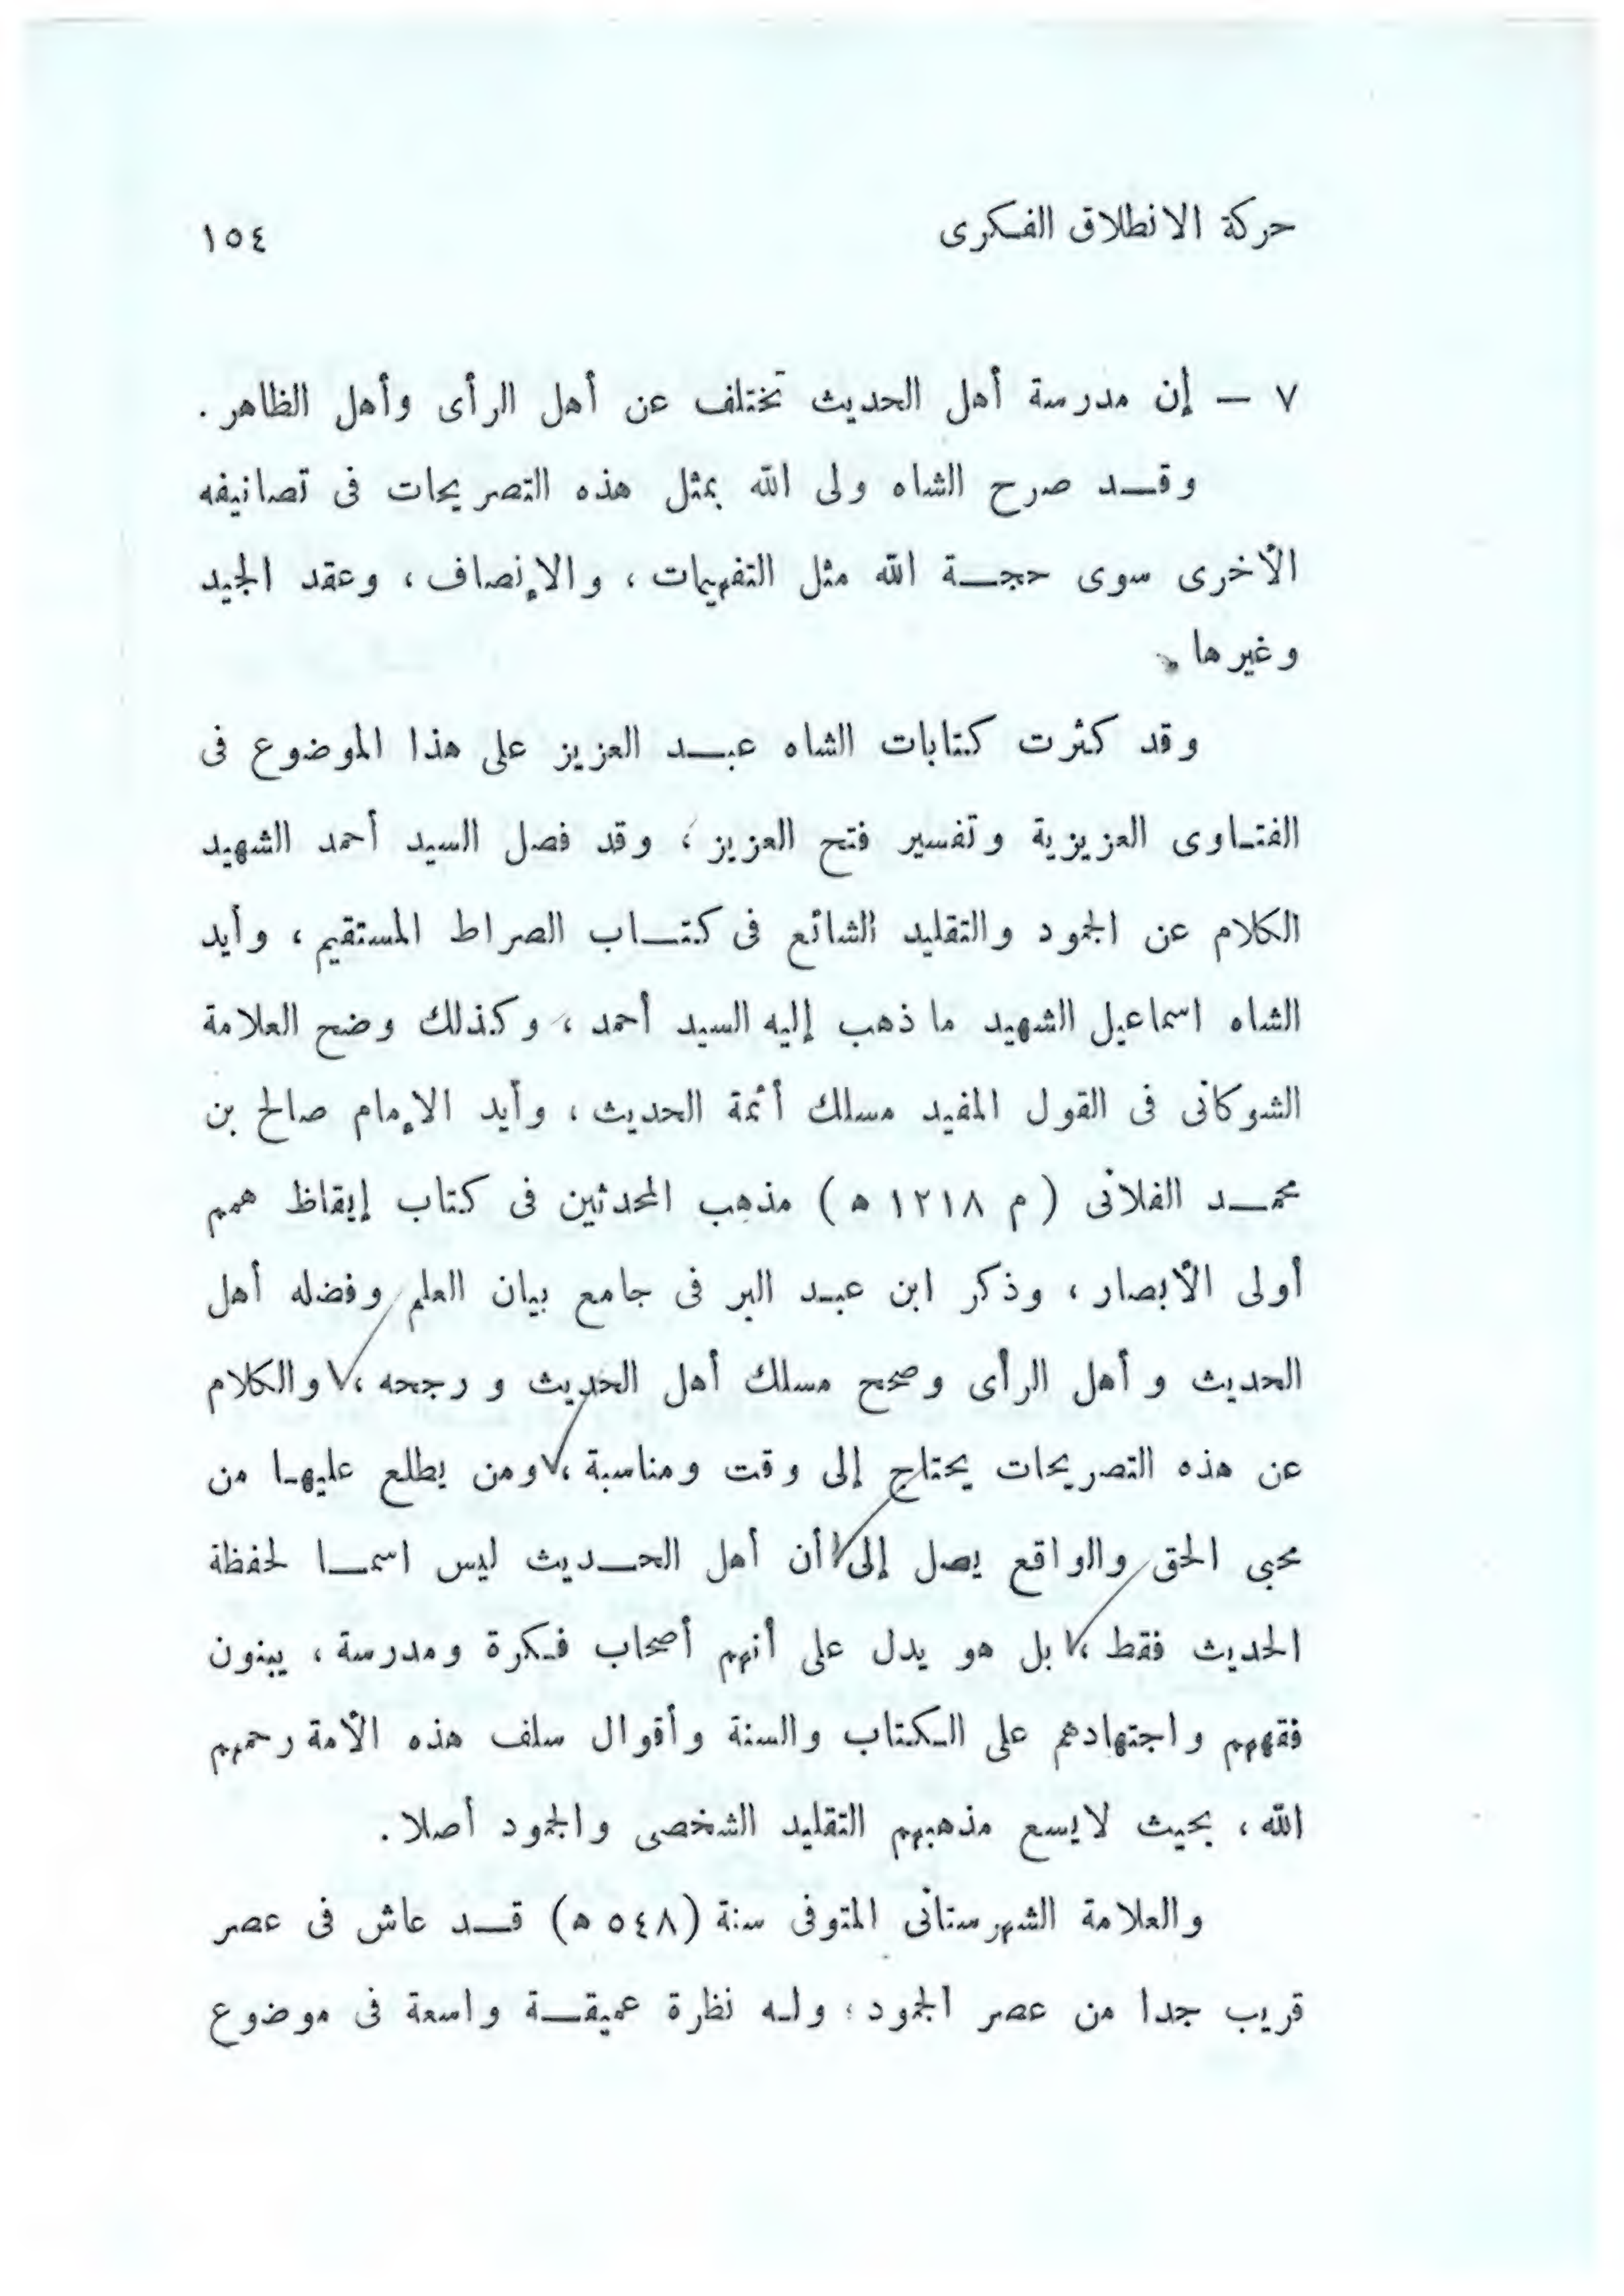 حركة الانطلاق الفكرى
١٥٤
٧ — إن مدرسة أهل الحديث تختلف عن أهل الرأى وأهل الظاهر .
وقد صرح الشاه ولى الله بمثل هذه التصريحات فى تصانيفه
الأخرى سوى حجة الله مثل التفهيمات ، والإنصاف ، وعقد الجيد
وغيرها .
وقد كثرت كتابات الشاه عبد العزيز على هذا الموضوع فى
الفتاوى العزيزية وتفسير فتح العزيز ؛ وقد فصل السيد أحمد الشهيد
الكلام عن الجمود والتقليد الشائع فى كتاب الصراط المستقيم ، وأيد
الشاه اسماعيل الشهيد ما ذهب إليه السيد أحمد ، وكذلك وضح العلامة
الشوكانى فى القول المفيد مسلك أئمة الحديث ، وأيد الإمام صالح بن
محمد الفلانى ( م ١٢١٨ ه ) مذهب المحدثين فى كتاب إيقاظ همم
أولى الأبصار ، وذكر ابن عبد البر فى جامع بيان العلم وفضله أهل
الحديث و أهل الرأى وصحح مسلك أهل الحديث و رجحه ، والكلام
عن هذه التصريحات يحتاج إلى وقت ومناسبة ، ومن يطلع عليها من
محبى الحق والواقع يصل إلى أن أهل الحديث ليس اسما لحفظة
الحديث فقط ، بل هو يدل على أنهم أصحاب فكرة ومدرسة ، يبنون
فقههم واجتهادهم على الكتاب والسنة وأقوال سلف هذه الأمة رحمهم
الله ، بحيث لايسع مذهبهم التقليد الشخصى والجمود أصلا .
والعلامة الشهرستانى المتوفى سنة (٥٤٨ ه) قد عاش فى عصر
قريب جدا من عصر الجمود ؛ وله نظرة عميقة واسعة فى موضوع